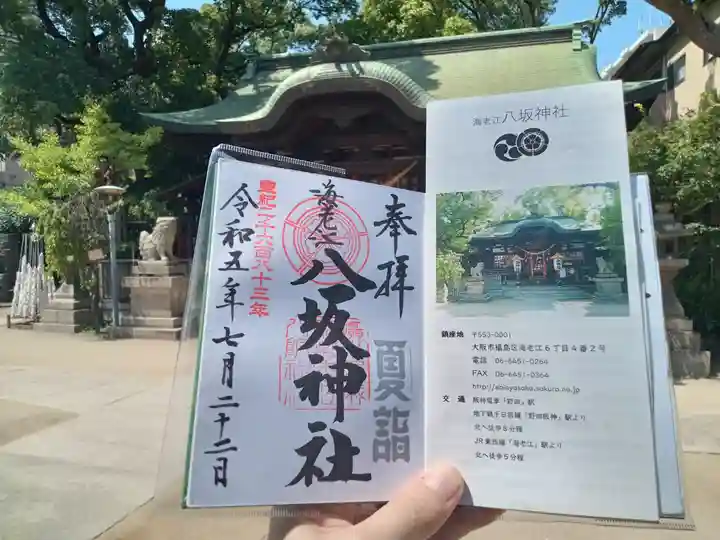 奉拝
海老江
八坂神社
夏詣
皇紀二千六百八十三年
令和五年七月二十二日
海老江 八坂神社
鎮座地 〒553-0001
大阪市福島区海老江6丁目4番2号
電話 06-6451-0264
FAX 06-6451-0364
http://ebisyasaka.sakura.ne.jp
交通 阪神電車「野田」駅
地下鉄千日前線「野田阪神」駅より
北へ徒歩8分程
JR東西線「海老江」駅より
北へ徒歩5分程